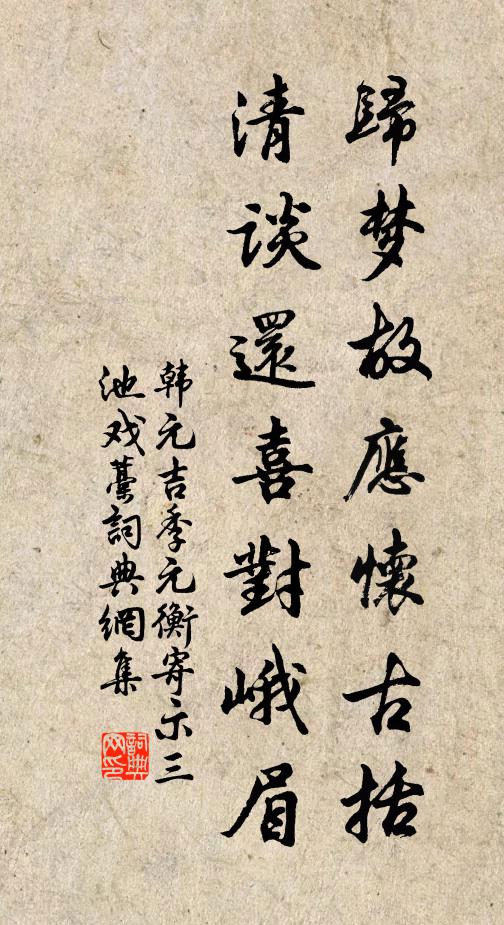 歸梦故應懷古括
清談還喜對峨眉
韩元吉季元衡寄示三
池戏藁詞典網集
詞典网印